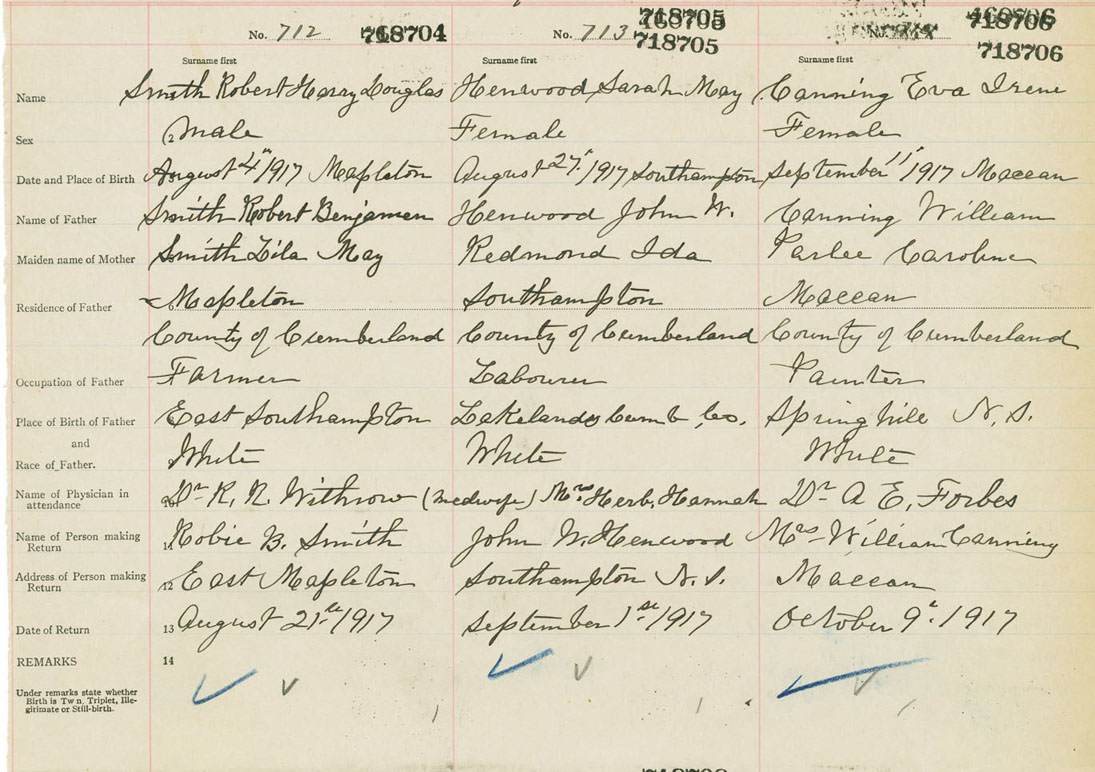 718705 468706
No. 712 718704 No. 713 718705 718706
718705 718706
Surname first Surname first Surname first
Name Smith Robert Harry Douglas Henwood Sarah May Canning Eva Irene
Sex 2 Male Female Female
Date and Place of Birth August 4"/1917 Mapleton August 27"/1917 Southampton September 11"/1917 Maccan
Name of Father Smith Robert Benjamen Henwood John W. Canning William
Maiden name of Mother Smith Lila May Redmond Ida Parlee Caroline
Residence of Father 6 Mapleton Southampton Maccan
County of Cumberland County of Cumberland County of Cumberland
Occupation of Father Farmer Labourer Painter
Place of Birth of Father East Southampton Lakelands Cumb. Co. Springhill N. S.
and
Race of Father. White White White
Name of Physician in Dr R. R. Withrow (Medwife) Mrs Herb. Hannah Dr A E. Forbes
attendance 10
Name of Person making Robie B. Smith John W. Henwood Mrs William Canning
Return 11
Address of Person making East Mapleton Southampton N. S. Maccan
Return 12
Date of Return 13 August 21st/1917 September 1st/1917 October 9"/1917
REMARKS 14
Under remarks state whether
Birth is Tw n, Triplet, Ille-
gitimate or Still-birth.